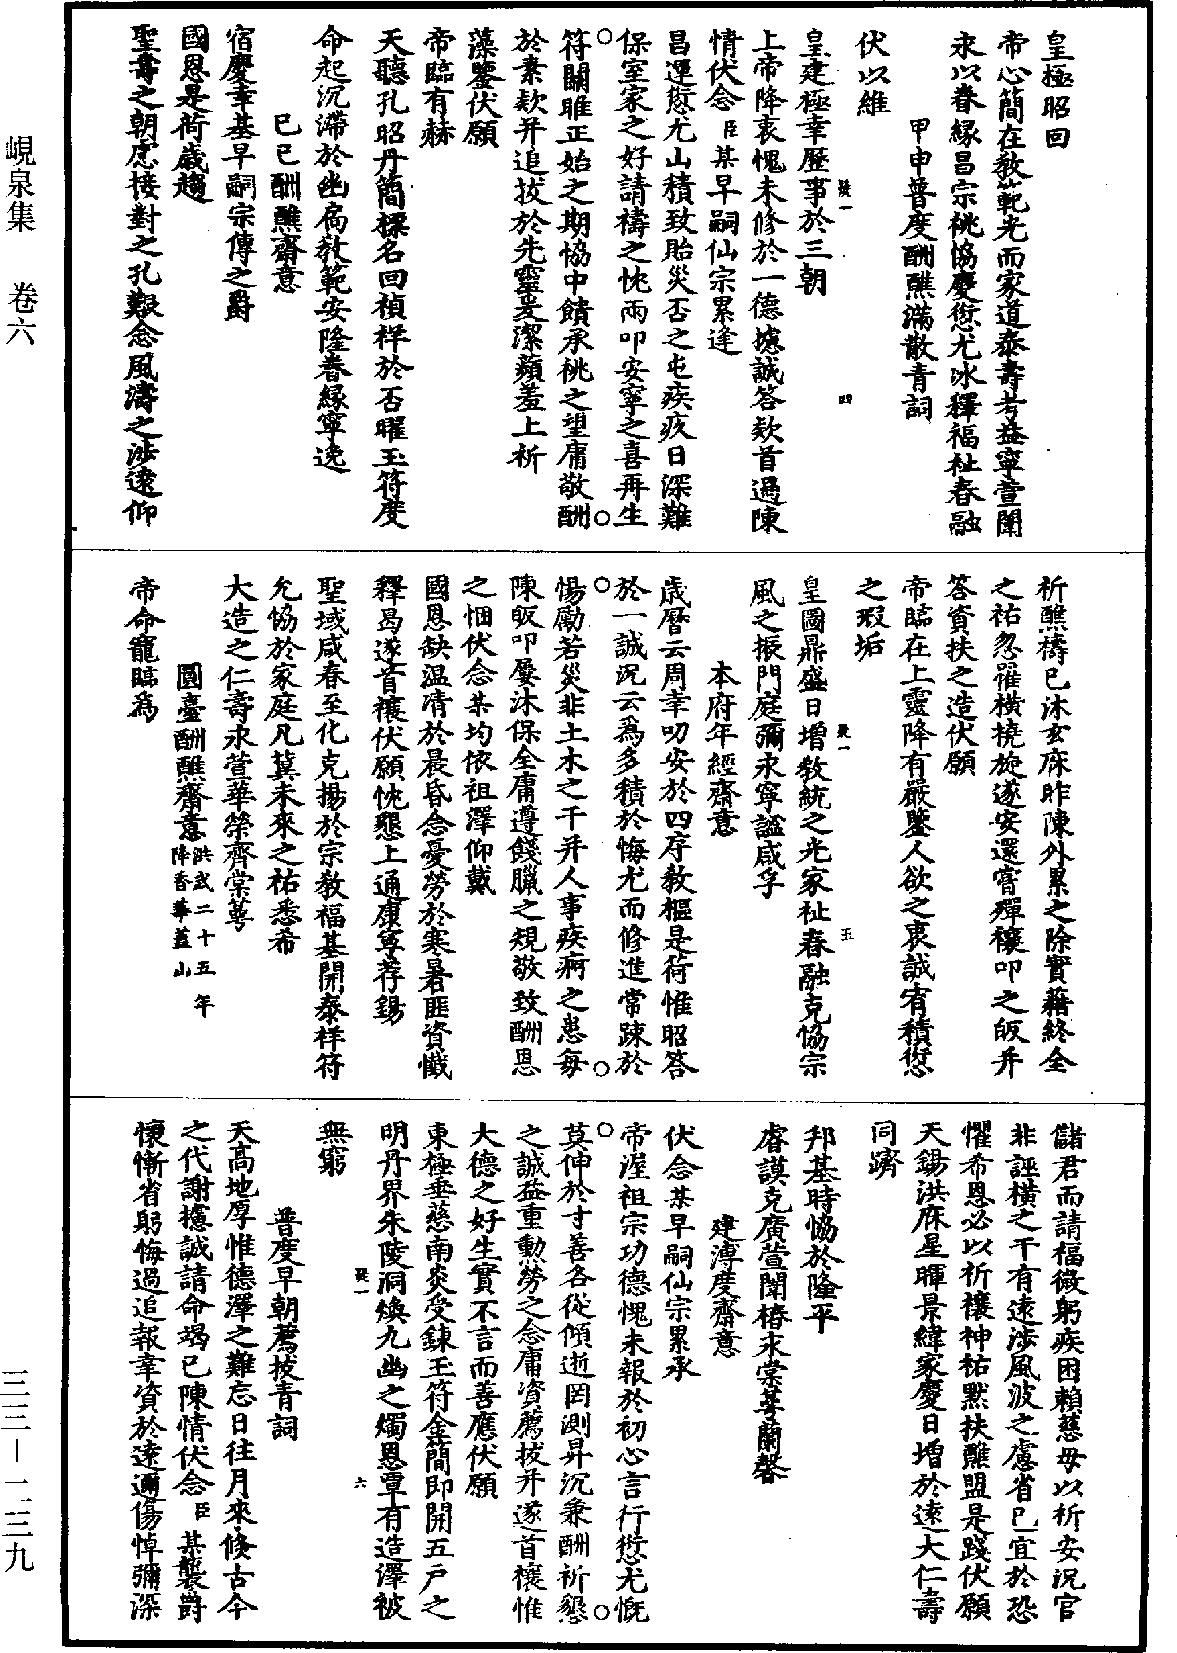 皇極昭回
帝心簡在教範光而家道泰壽考益寧萱闈
永以春緣昌宗祧協慶愆尤冰釋福祉春融
甲申普度酬醮滿散青詞
伏以維
皇建極幸歷事於三朝
上帝降衷愧未修於一德攄誠答欵首過陳
情伏念臣某早嗣仙宗累逢
昌運愆尤山積致貽災否之屯疾疚日深難
保室家之好請禱之忱兩叩安寧之喜再生
符關睢正始之期協中饋承祧之望庸敬酬
於素欵并追拔於先靈爰潔蘋羞上祈
藻鑒伏願
帝臨有赫
天聽孔昭丹簡標名回禎祥於否曜玉符度
命起沉滯於幽扃教範安隆眷緣寧逸
己巳酬醮齋意
宿慶幸基早嗣宗傳之爵
國恩是荷歲趨
聖壽之朝慮接對之孔艱念風濤之涉遠仰
祈醮禱已沐玄庥昨陳外累之除實藉終全
之祐忽罹橫撓旋遂安還甯殫穰叩之皈并
答資扶之造伏願
帝臨在上靈降有嚴鑒人欲之衷誠宥積愆
之瑕垢
皇圖鼎盛日增教統之光家祉春融克協宗
風之振門庭彌永寧謐咸孚
本府年經齋意
歲曆云周幸叨安於四序教樞是荷惟昭答
於一誠況云為多積於悔尤而修進常踈於
惕勵若災非土木之干并人事疾痾之患每
陳皈叩屢沐保全庸遵餞臘之規敬致酬恩
之悃伏念某均依祖澤仰戴
國恩缺温凊於晨昏念憂勞於寒暑匪資懺
釋曷遂首禳伏願忱懇上通康寧荐錫
聖域咸春至化克揚於宗教福基開泰祥符
允協於家庭凡冀未來之祐悉希
大造之仁壽永萱華榮齊棠萼
圓臺酬醮齋意洪武二十五年降香華蓋山
帝命寵臨為
儲君而請福微躬疾困賴慈母以祈安況官
非誣橫之干有遠涉風波之慮省已宜於恐
懼希恩必以祈禳神祐默扶醮盟是踐伏願
天錫洪庥星暉景緯家慶日增於遠大仁壽
同躋
邦基時協於隆平
睿謨克廣萱闈椿永棠萼蘭馨
建溥度齋意
伏念某早嗣仙宗累承
帝渥祖宗功德愧未報於初心言行愆尤慨
莫伸於寸善各從傾逝罔測昇沉兼酬祈懇
之誠益重勳勞之念庸資薦拔并遂首禳惟
大德之好生實不言而善應伏願
東極垂慈南炎受鍊玉符金簡即開五戶之
明丹界朱陵洞煥九幽之燭恩覃有造澤被
無窮
普度早朝薦拔青詞
天高地厚惟德澤之難忘日往月來倏古今
之代謝攄誠請命竭已陳情伏念臣某襲爵
懷慚省躬悔過追報幸資於遠邇傷悼彌深
疑一
四
疑一
五
疑一
六
峴泉集 卷六
三三—一三九